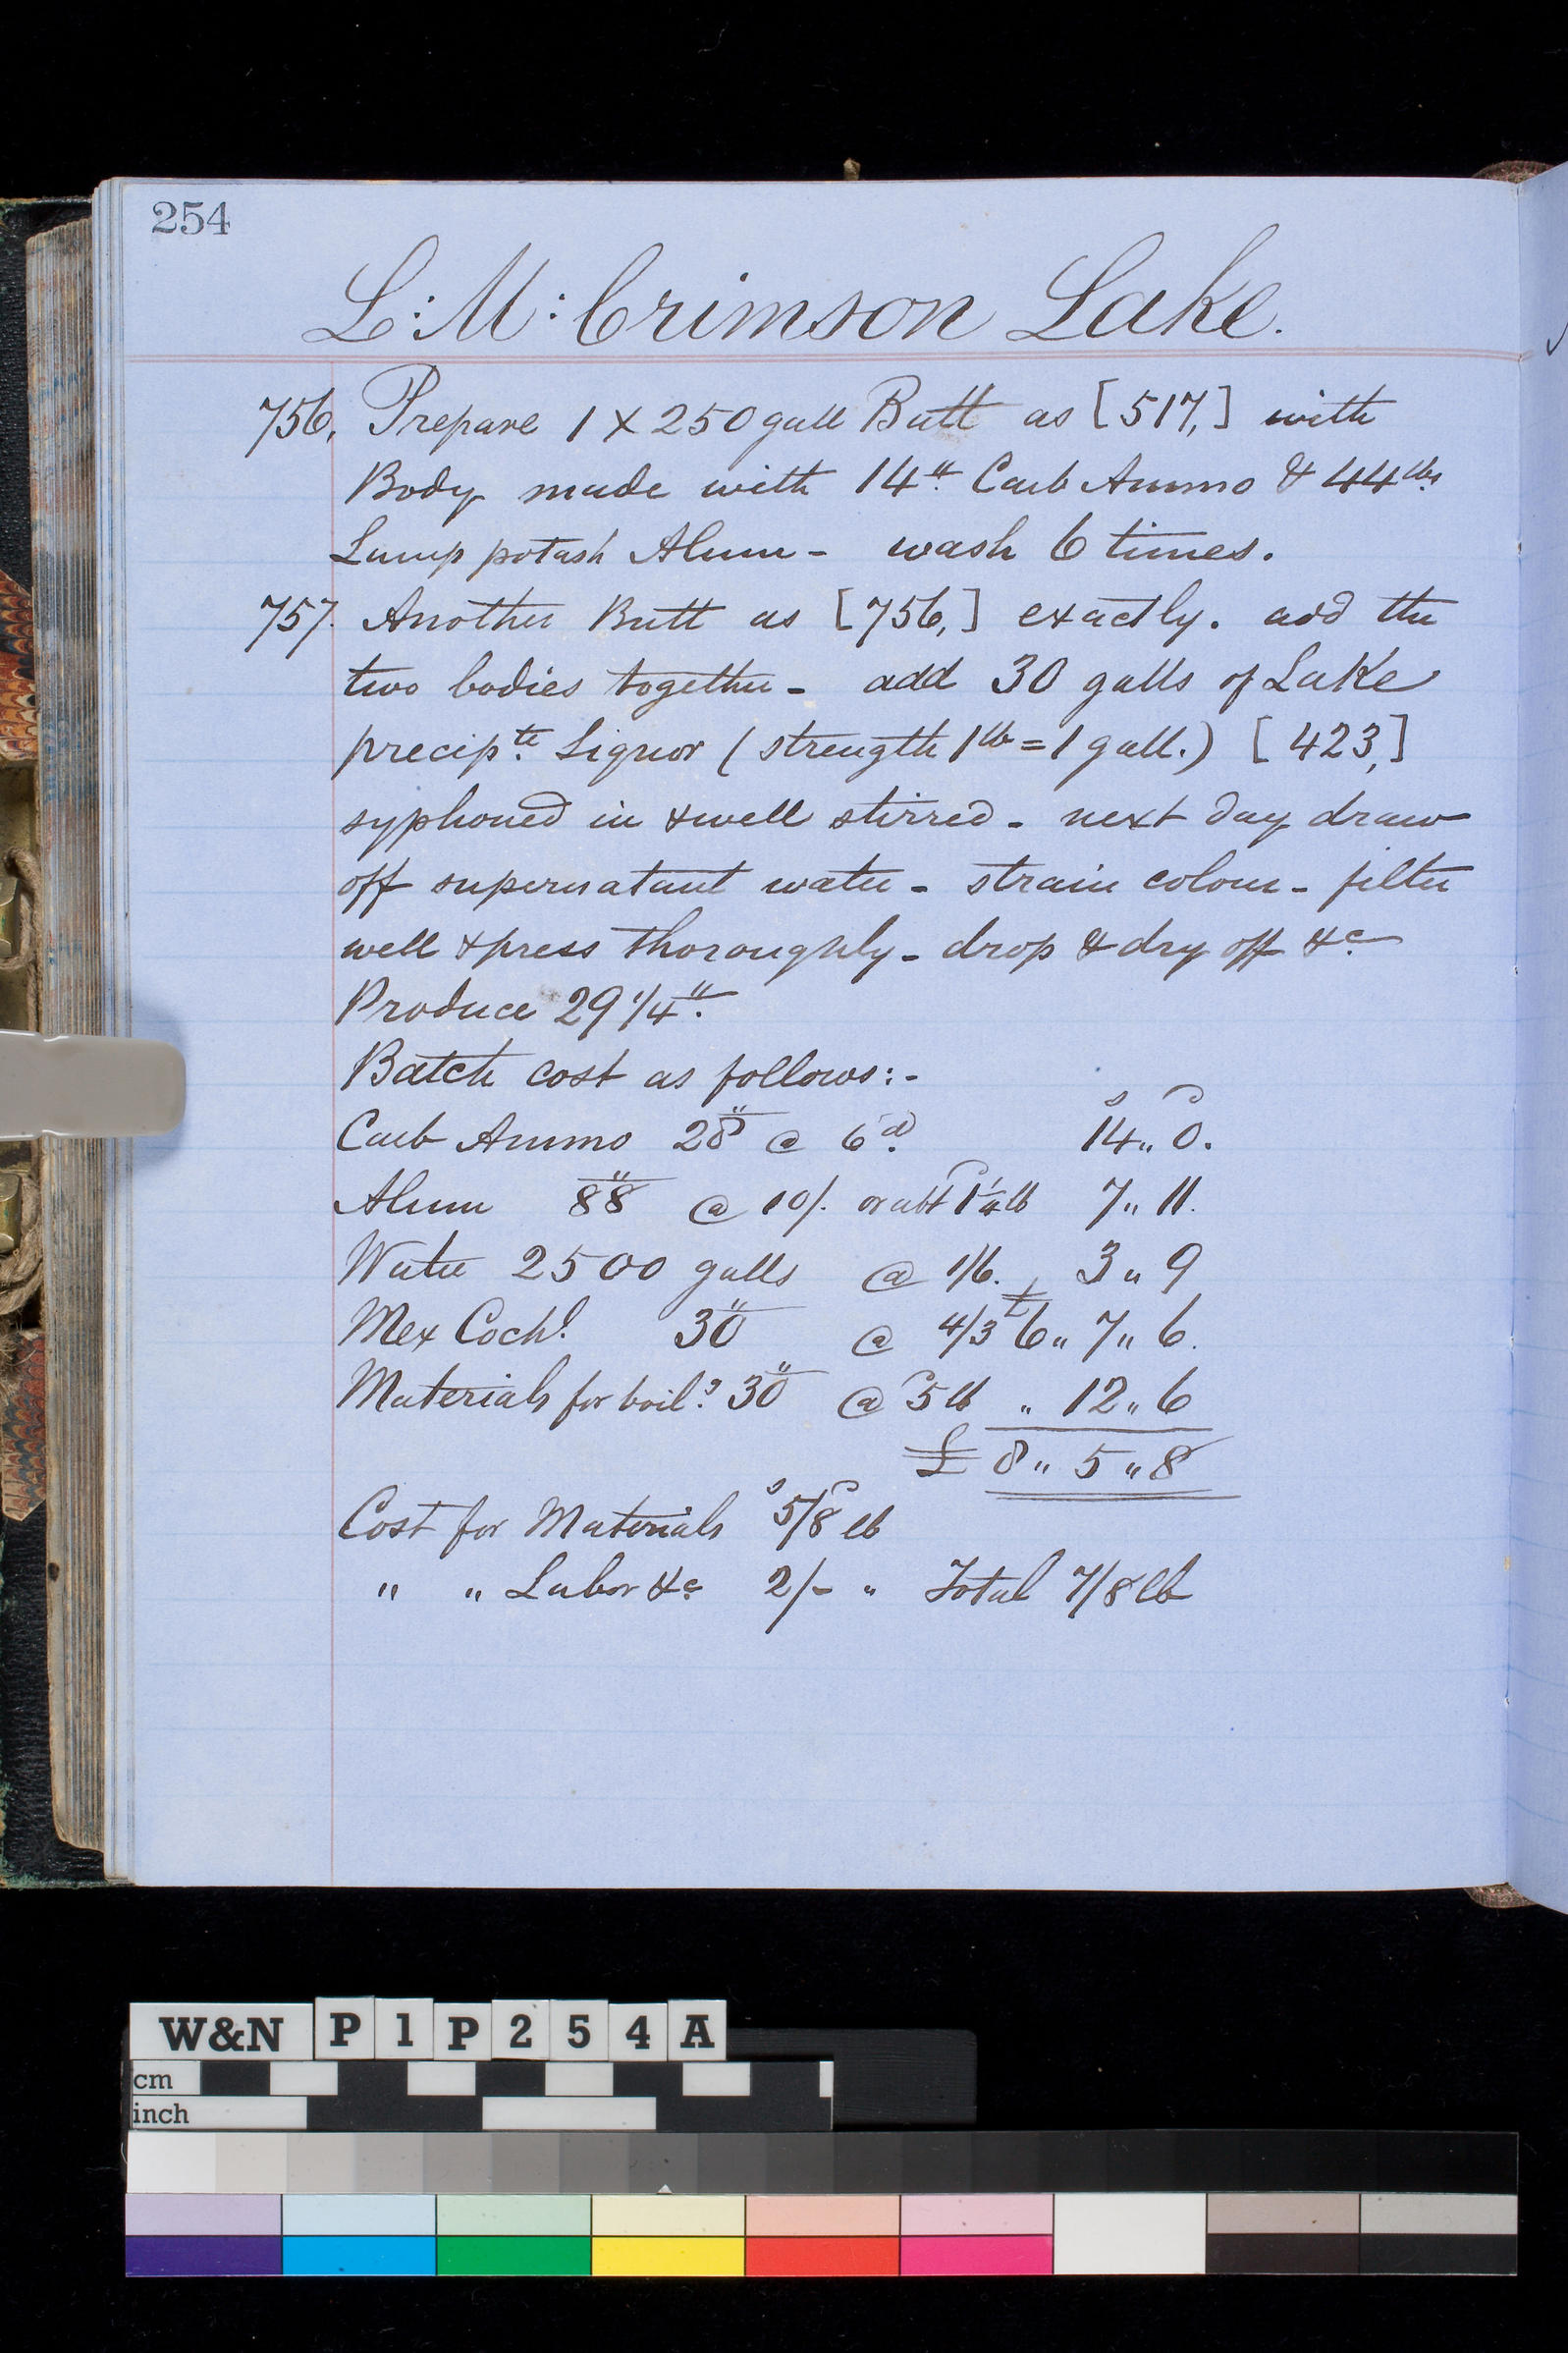 254
L:M: Crimson Lake.
756, Prepare 1 X 250 gall Butt as [517,] with
Body made with 14" Carb Ammo & 44 lbs
Lump potash Alum - wash 6 times.
757. Another Butt as [756,] exactly. add the
two bodies together - add 30 galls of Lake
precipte Liquor (strength 1 lb = 1 gall.) [423,]
syphoned in & well stirred - next day draw
off supernatant water - strain colour - filter
well & press thoroughly - drop & dry off &c
Produce 29 1/4"
Batch cost as follows:-
s D
Carb Ammo 28" @ 6d 14 " 0.
Alum 88" @ 10/. or abt D1 1/4 lb 7 " 11.
Water 2500 galls @ 1/6. 3 " 9
Mex Cochl 30" @ 4/3 £6 " 7 " 6.
Materials for boilg 30" @ D5 lb " 12 " 6
£ 8 " 5 " 8
Cost for Materials s5/D8 lb
" " Labor &c 2/- " Total 7/8 lb
W&N P1P254A
cm
inch